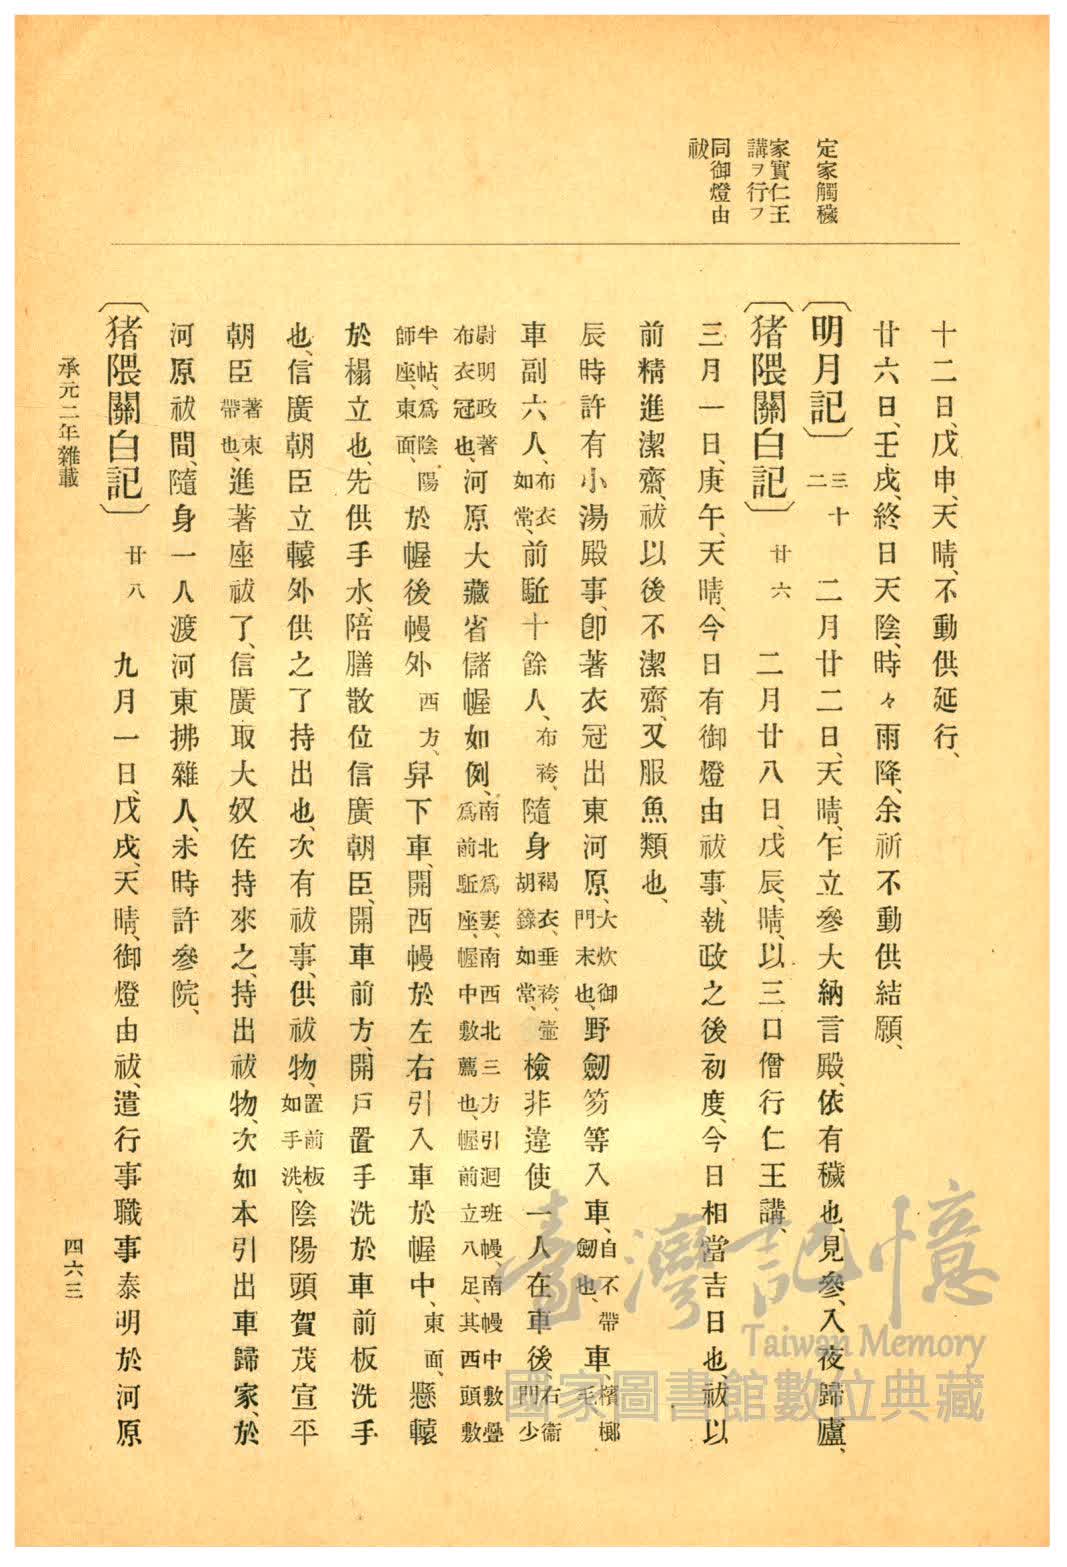 定家觸穢
家實仁王
講ヲ行フ
同御燈由
祓
十二日、戊申、天晴、不動供延行、
廿六日、壬戌、終日天陰、時々雨降、余祈不動供結願、
〔明月記〕三十二 二月廿二日、天晴、乍立參大納言殿、依有穢也、見參、入夜歸廬、
〔猪隈關白記〕廿六 二月廿八日、戊辰、晴、以三口僧行仁王講、
三月一日、庚午、天晴、今日有御燈由祓事、執政之後初度、今日相當吉日也、祓以
前精進潔齋、祓以後不潔齋、又服魚類也、
辰時許有小湯殿事、卽著衣冠出東河原、大炊御門末也、野劒笏等入車、自不帶劒也、車、檳榔毛、
車副六人、布衣如常、前駈十餘人、布袴、隨身褐衣、垂袴、壷胡籙如常、檢非違使一人在車後、右衞門少
尉明政著布衣冠也、河原大藏省儲幄如例、南北爲妻、南西北三方引迴班幔、南幔中敷疊爲前駈座、幄中敷薦也、幄前立八足、其西頭敷
半帖、爲陰陽師座、東面、於幄後幔外西方、舁下車、開西幔於左右引入車於幄中、東面、懸轅
於榻立也、先供手水、陪膳散位信廣朝臣、開車前方、開戸置手洗於車前板洗手
也、信廣朝臣立轅外供之了持出也、次有祓事、供祓物、置前板如手洗、陰陽頭賀茂宣平
朝臣著束帶也、進著座祓了、信廣取大奴佐持來之、持出祓物、次如本引出車歸家、於
河原祓間、隨身一人渡河東拂雜人、未時許參院、
〔猪隈關白記〕廿八 九月一日、戊戌、天晴、御燈由祓、遣行事職事泰明於河原
承元二年雜載
四六三
臺灣記憶
Taiwan Memory
國家圖書館數位典藏